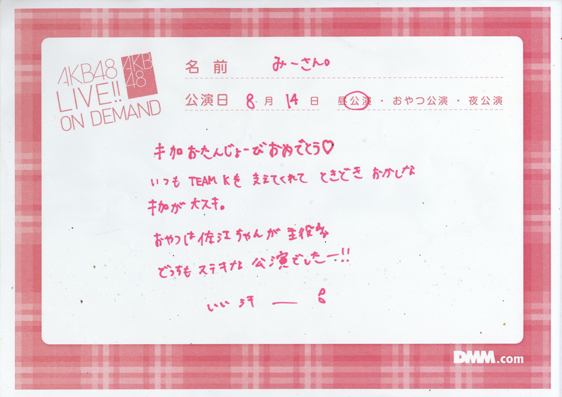 AKB48
LIVE!!
ON DEMAND
AKB
48
名前 みーさん。
公演日 8月14日 昼公演・おやつ公演・夜公演
キ加 おたんじょーびおめでとう♡
いつも TEAM Kを 支えてくれて ときどき おかしな
キ加が 大スキ。
おやつは 佐江ちゃんが 主役
どっちも ステキな 公演でしたー!!
いい 汗 ー
DMM.com